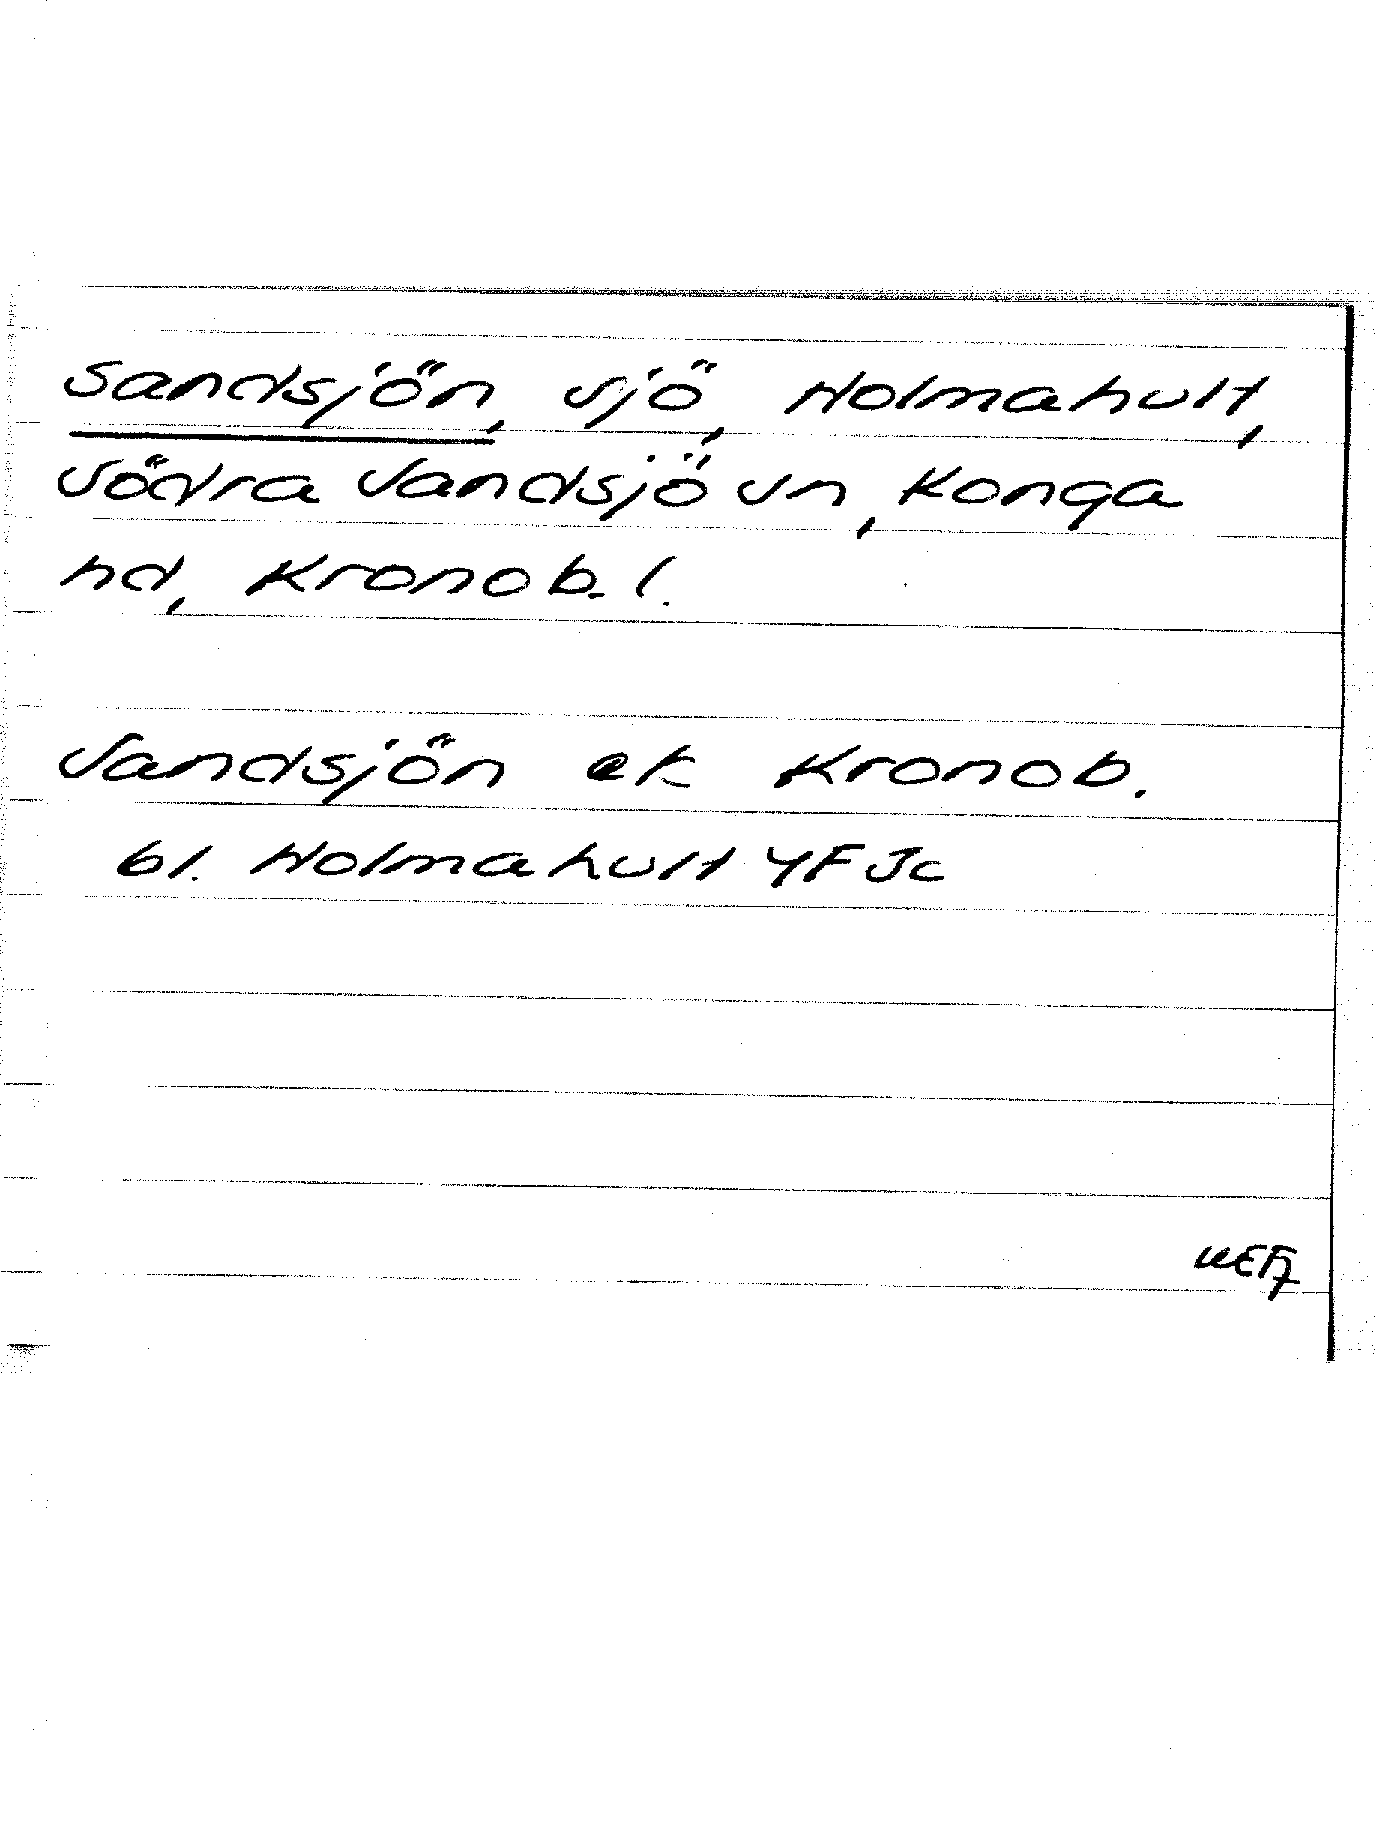 Sandsjön, sjö, Holmahult,
Södra Sandsjö sn, Konga
hd, Kronob. l.
Sandsjön ek Kronob.
bl. Holmahult 4F Jc